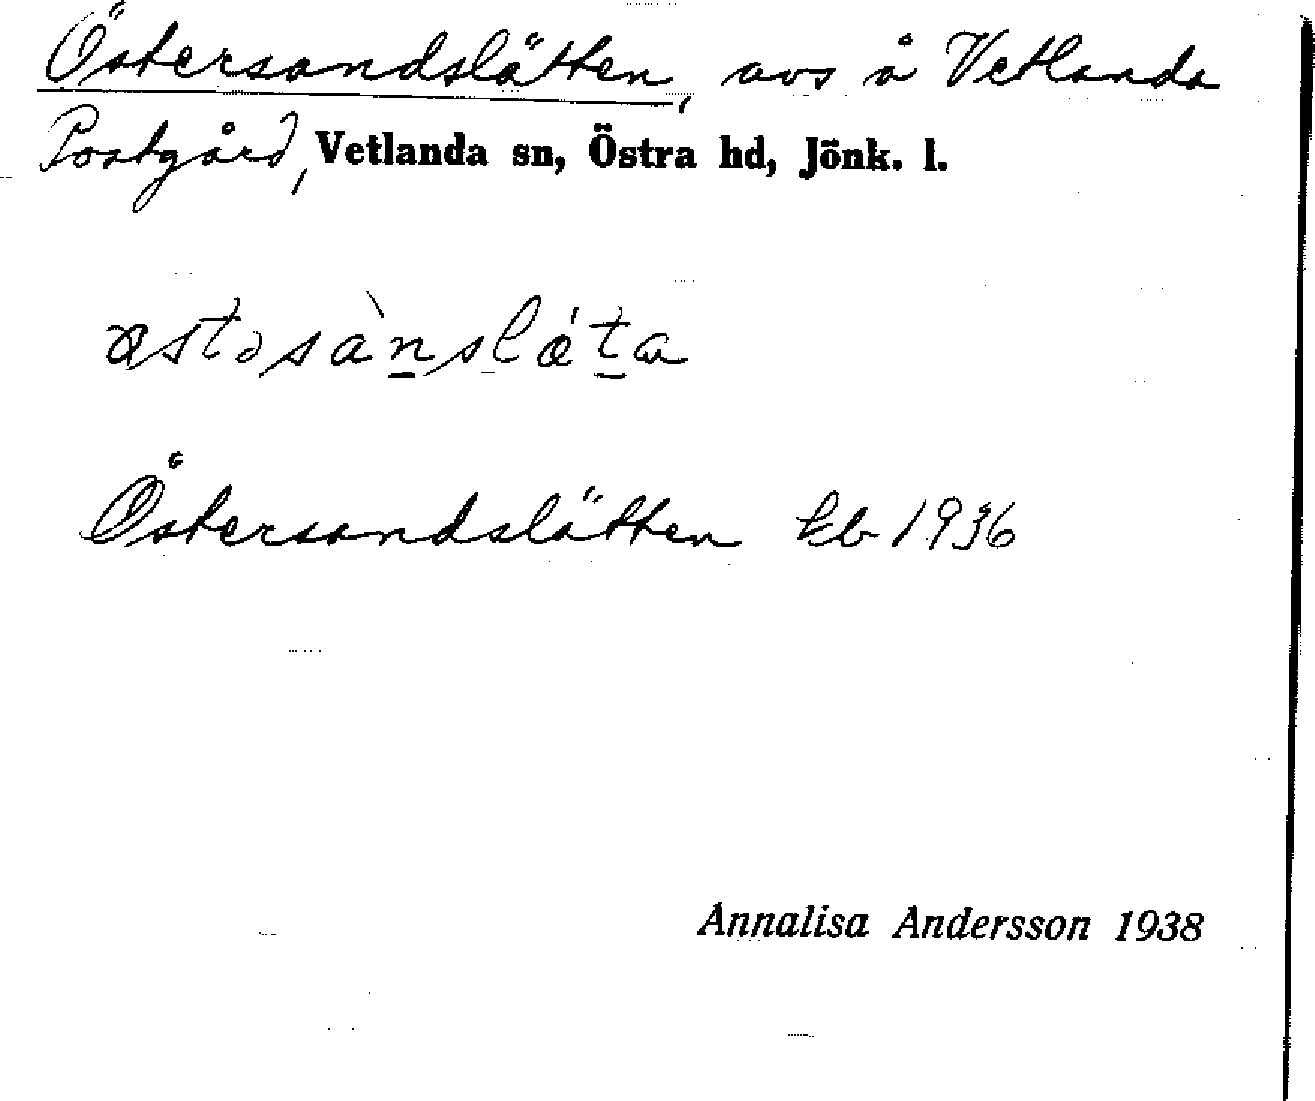 Östersandslätten, avs å Vetlanda
Postgård, Vetlanda sn, Östra hd, Jönk. l.
östəsànslǽta
Östersandslätten kb 1936
Annalisa Andersson 1938